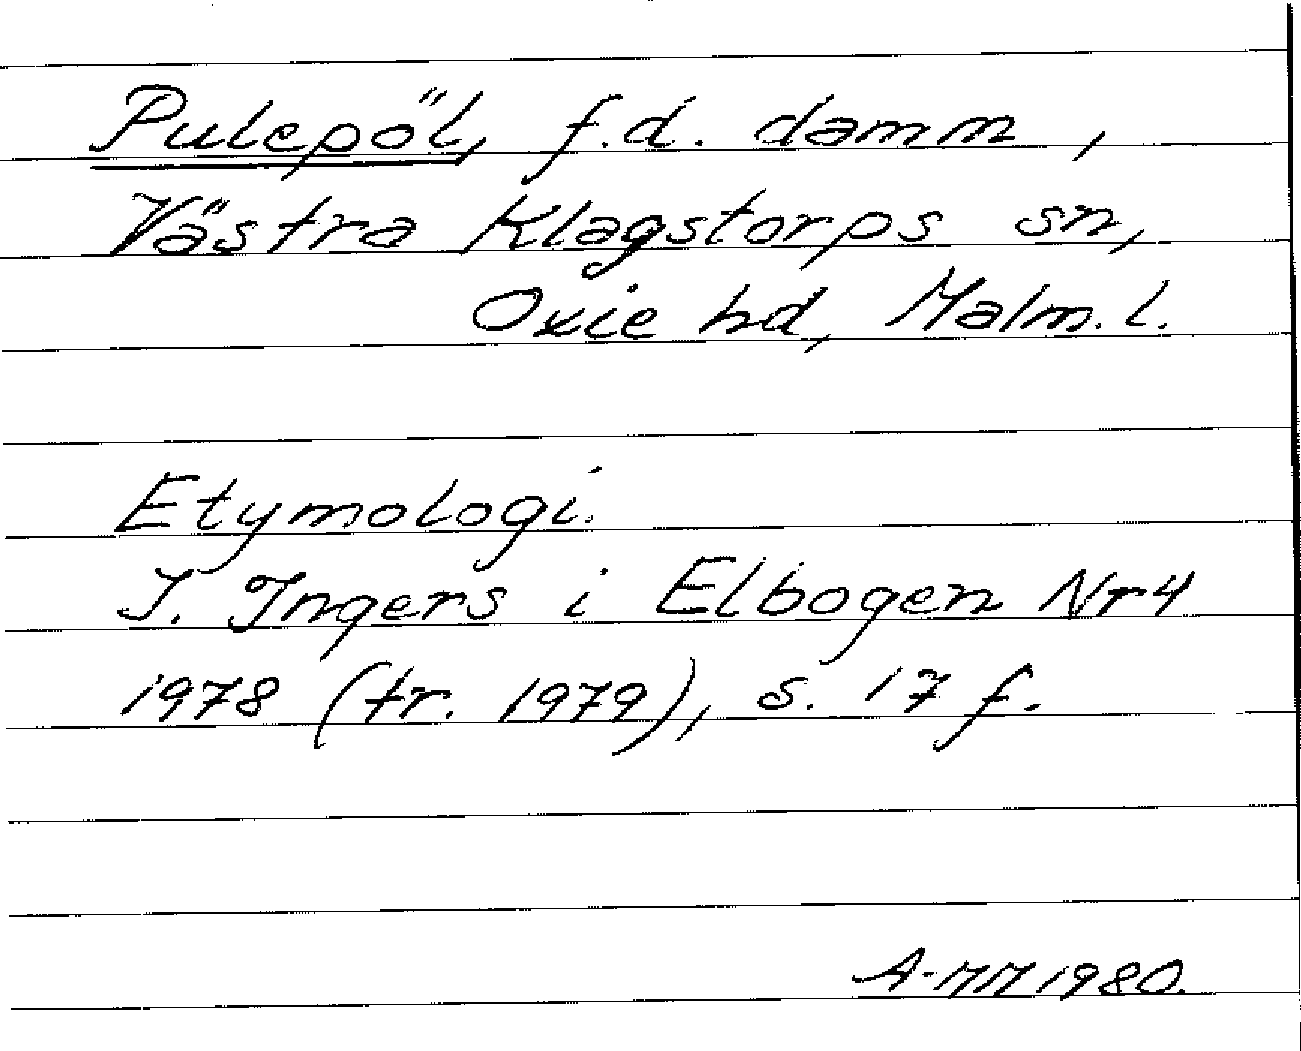 Pulepöl, f.d. damm,
Västra Klagstorps sn,
Oxie hd, Malm. l.
Etymologi.
I. Ingers i Elbogen Nr 4
1978 (tr. 1979), s. 17 f.
A-MM 1980.